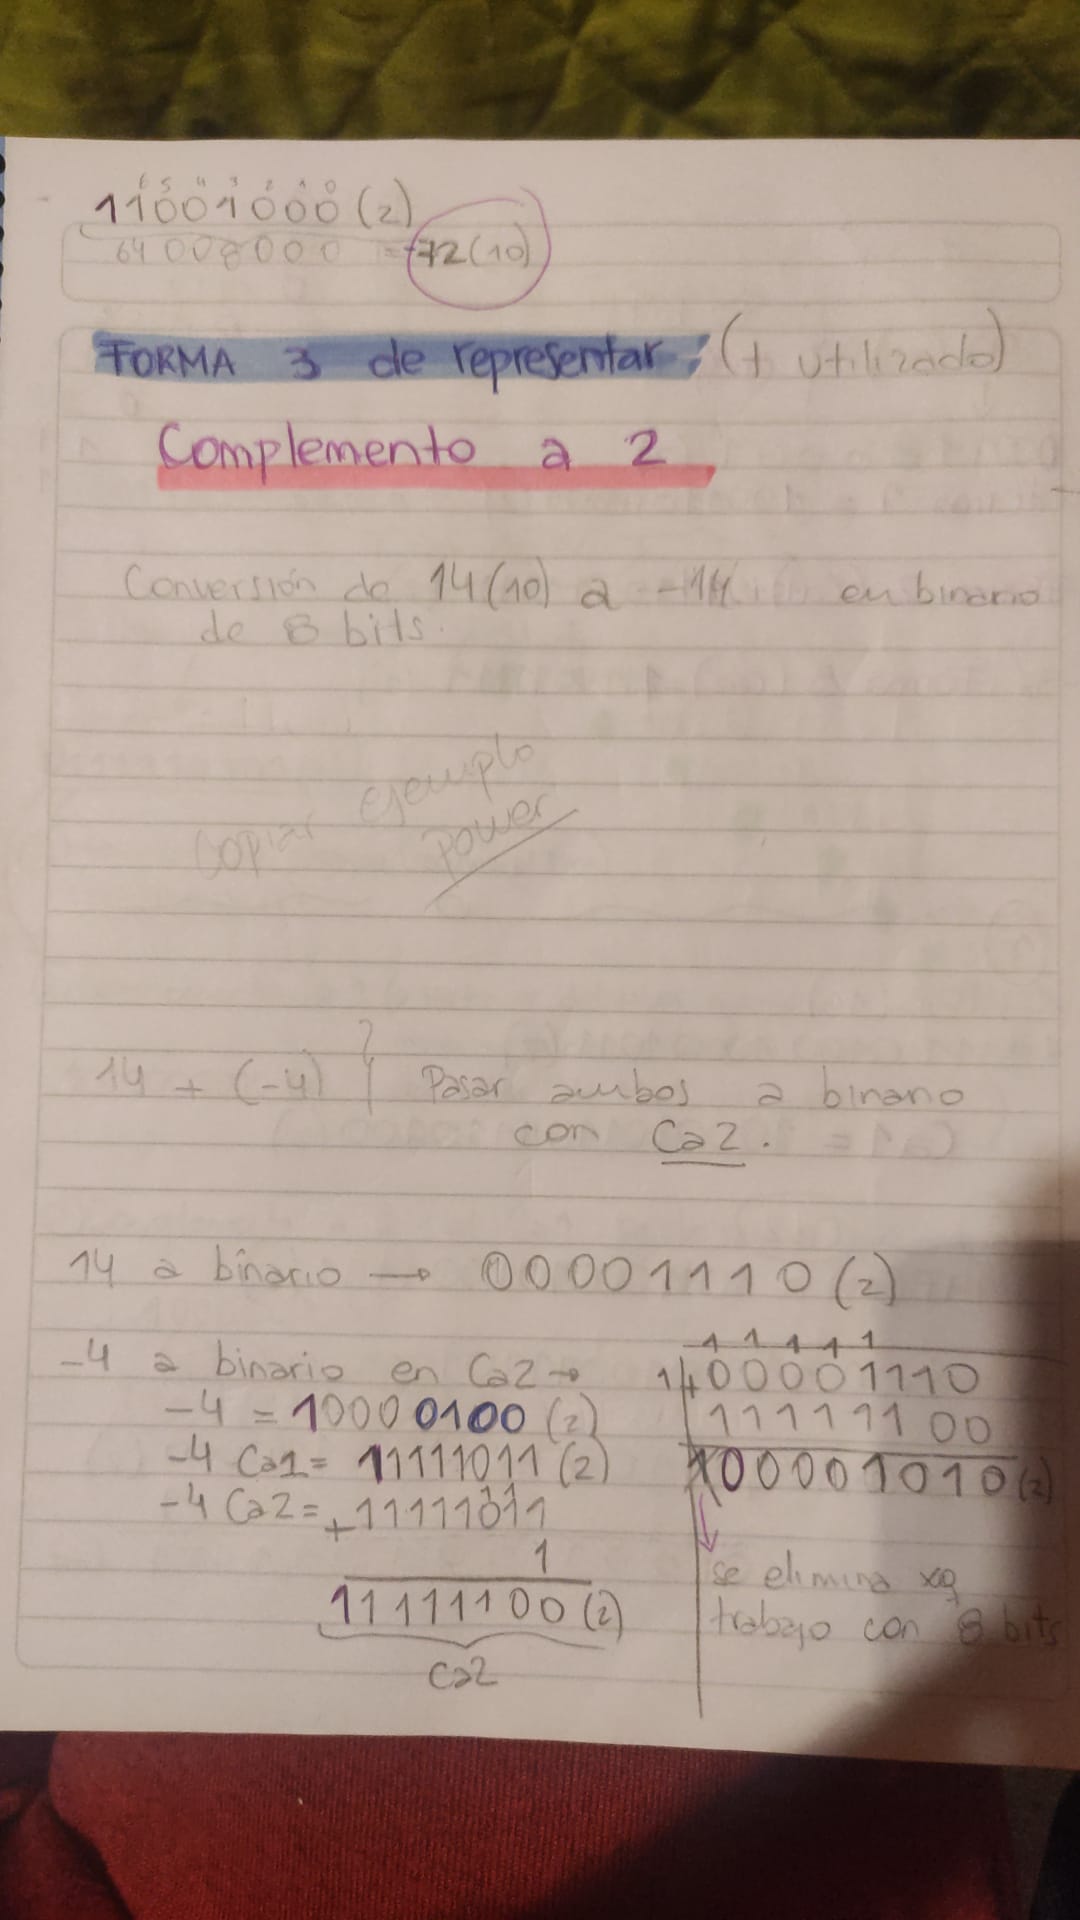 6 5 4 3 2 1 0
11001000(2)
64 0 0 8 0 0 0 = -72(10)
FORMA 3 de representar: (+ utilizado)
Complemento a 2
Conversión de 14(10) a -14 en binario
de 8 bits.
Copiar ejemplo
power
14 + (-4) } Pasar ambos a binario
con Ca2.
14 a binario → 00001110(2)
-4 a binario en Ca2→
-4 = 10000100(2)
-4 Ca1= 11111011(2)
-4 Ca2= +11111011
1
11111100(2)
Ca2
1 1 1 1 1
14 00001110
11111100
100001010(2)
se elimina xq
trabajo con 8 bits